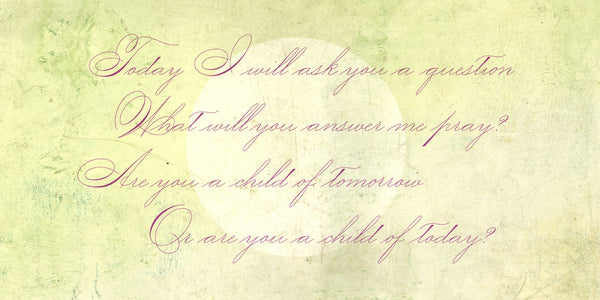 Today I will ask you a question
What will you answer me pray?
Are you a child of tomorrow
Or are you a child of today?